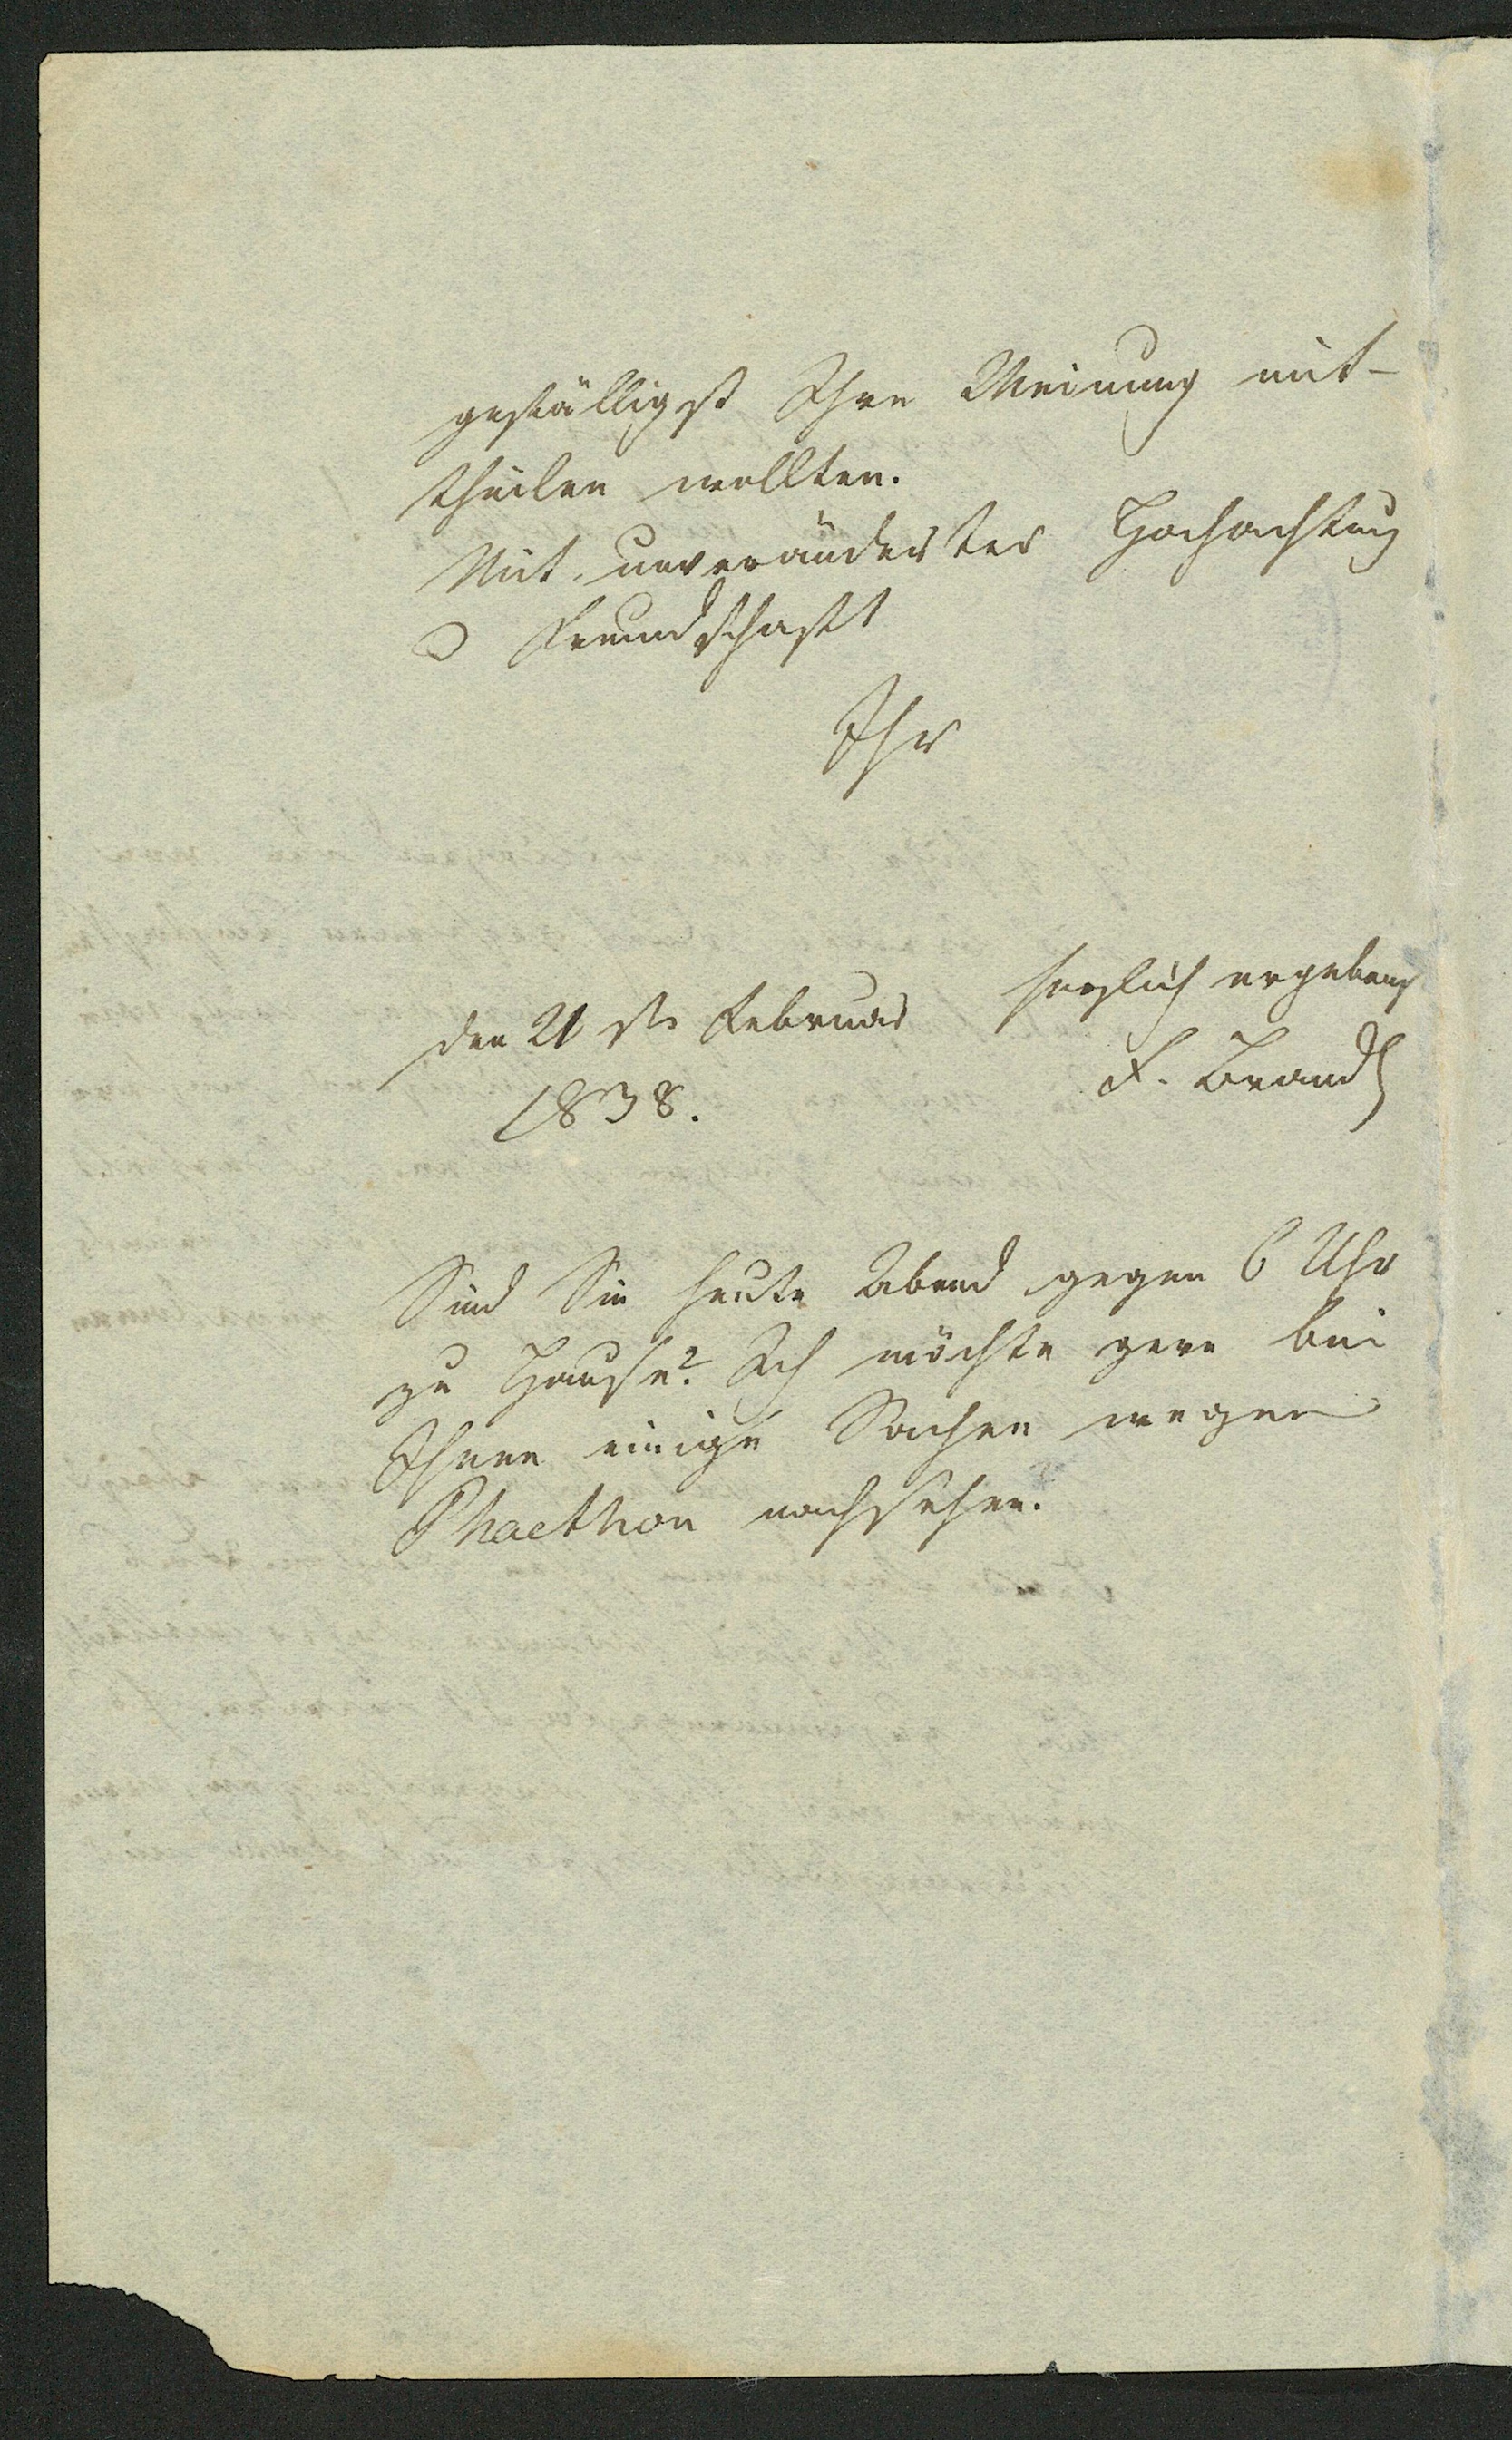 gefälligst Ihre Meinung mit-
theilen wollten.
Mit unveränderter Hochachtung
u Freundschaft
Ihr
herzlich ergebenst
den 21 ste Februar
F. Brandt
1838.
Sind Sie heute Abend gegen 6 Uhr
zu Hause? Ich möchte gern bei
Ihnen einige Sachen wegen
Phaethon nachsehen.